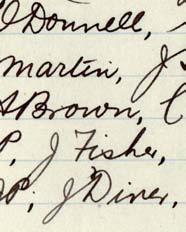 O'Donnell,
Martin, J
Brown, C
P, J Fisher,
P, J Diver,